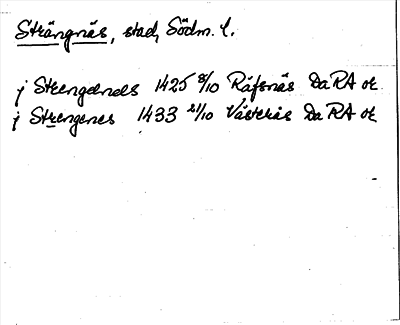 Strängnäs, stad, Södm. l.
j Strengenæs 1425 8/10 Räfsnäs DaRA or.
j Strengenes 1433 21/10 Västerås DaRA or.